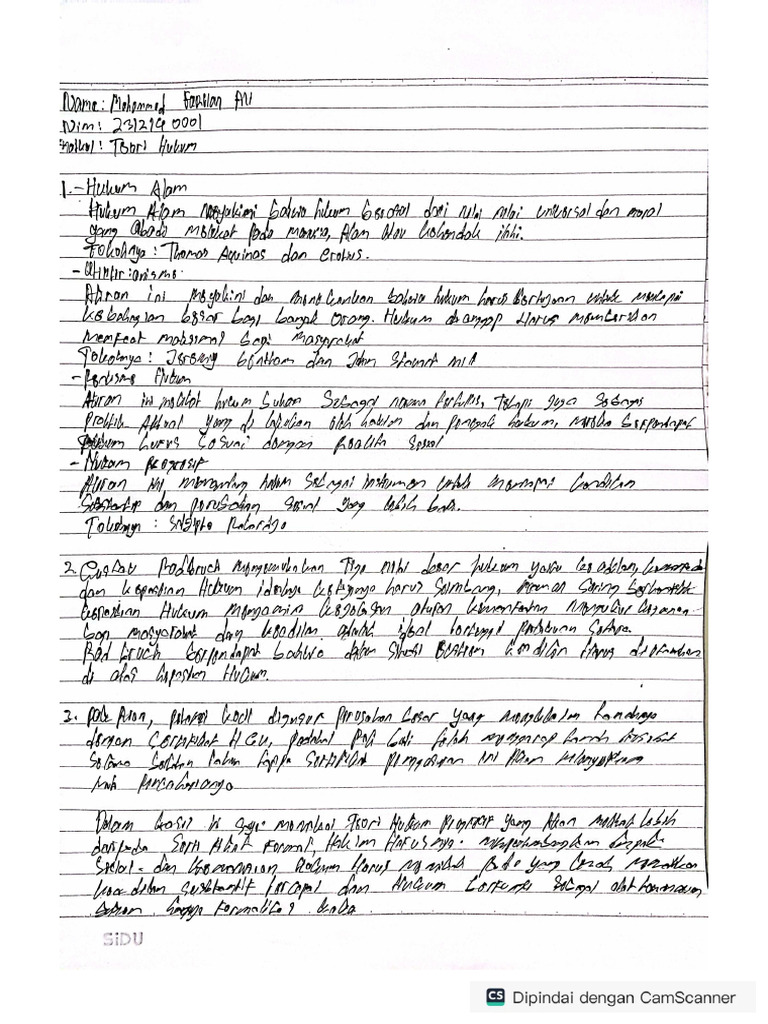 Name: Mohammad Fadilan Ali
Nim: 231219 0001
Matkul: Teori Hukum
1. - Hukum Alam
Hukum Alam meyakini bahwa hukum berasal dari nilai nilai universal dan moral
yang abadi melekat pada manusia, Alam atau kehendak ilahi.
Tokohnya: Thomas Aquinas dan Grotius.
- Utilitarianisme
Aliran ini meyakini dan menekankan bahwa hukum harus bertujuan untuk mencapai
kebahagiaan besar bagi banyak orang. Hukum dianggap harus memberikan
manfaat maksimal bagi masyarakat
Tokohnya: Jeremy Bentham dan John Stuart Mill
- Realisme Hukum
Aliran ini melihat hukum bukan sebagai norma tertulis, tetapi juga sebagai
Praktik aktual yang di lakukan oleh hakim dan penegak hukum, mereka berpendapat
hukum harus sesuai dengan realita sosial
- Hukum Progresif
Aliran ini memandang hukum sebagai instrumen untuk mencapai keadilan
Substantif dan perubahan sosial yang lebih baik.
Tokohnya: Satjipto Rahardjo
2. Gustav Radbruch mengemukakan Tiga nilai dasar hukum yaitu keadilan, kemanfaatan
dan kepastian Hukum idealnya ketiganya harus seimbang, namun sering berkonflik
kepastian Hukum menjamin kejelasan aturan kemanfaatan mengukur
bagi masyarakat dan keadilan adalah ideal tertinggi
Radbruch berpendapat bahwa dalam situasi keadilan harus di utamakan
di atas kepastian Hukum.
3. petani kecil digusur perusahan besar yang mengklaim tanahnya
dengan sertifikat HGU, padahal telah menggarap tanah tersebut
selama puluhan tahun tanpa sertifikat penggusuran ini akan
mata pencahariannya
Dalam kasus ini saya menilai Teori Hukum Progresif yang akan melihat lebih
daripada formal, Hakim harusnya mempertimbangkan dampak
sosial dan kemanusiaan Hukum Harus memihak pada yang lemah
keadilan substantif tercapai dan Hukum berfungsi sebagai alat
bukan hanya formalitas
SiDU
CS Dipindai dengan CamScanner